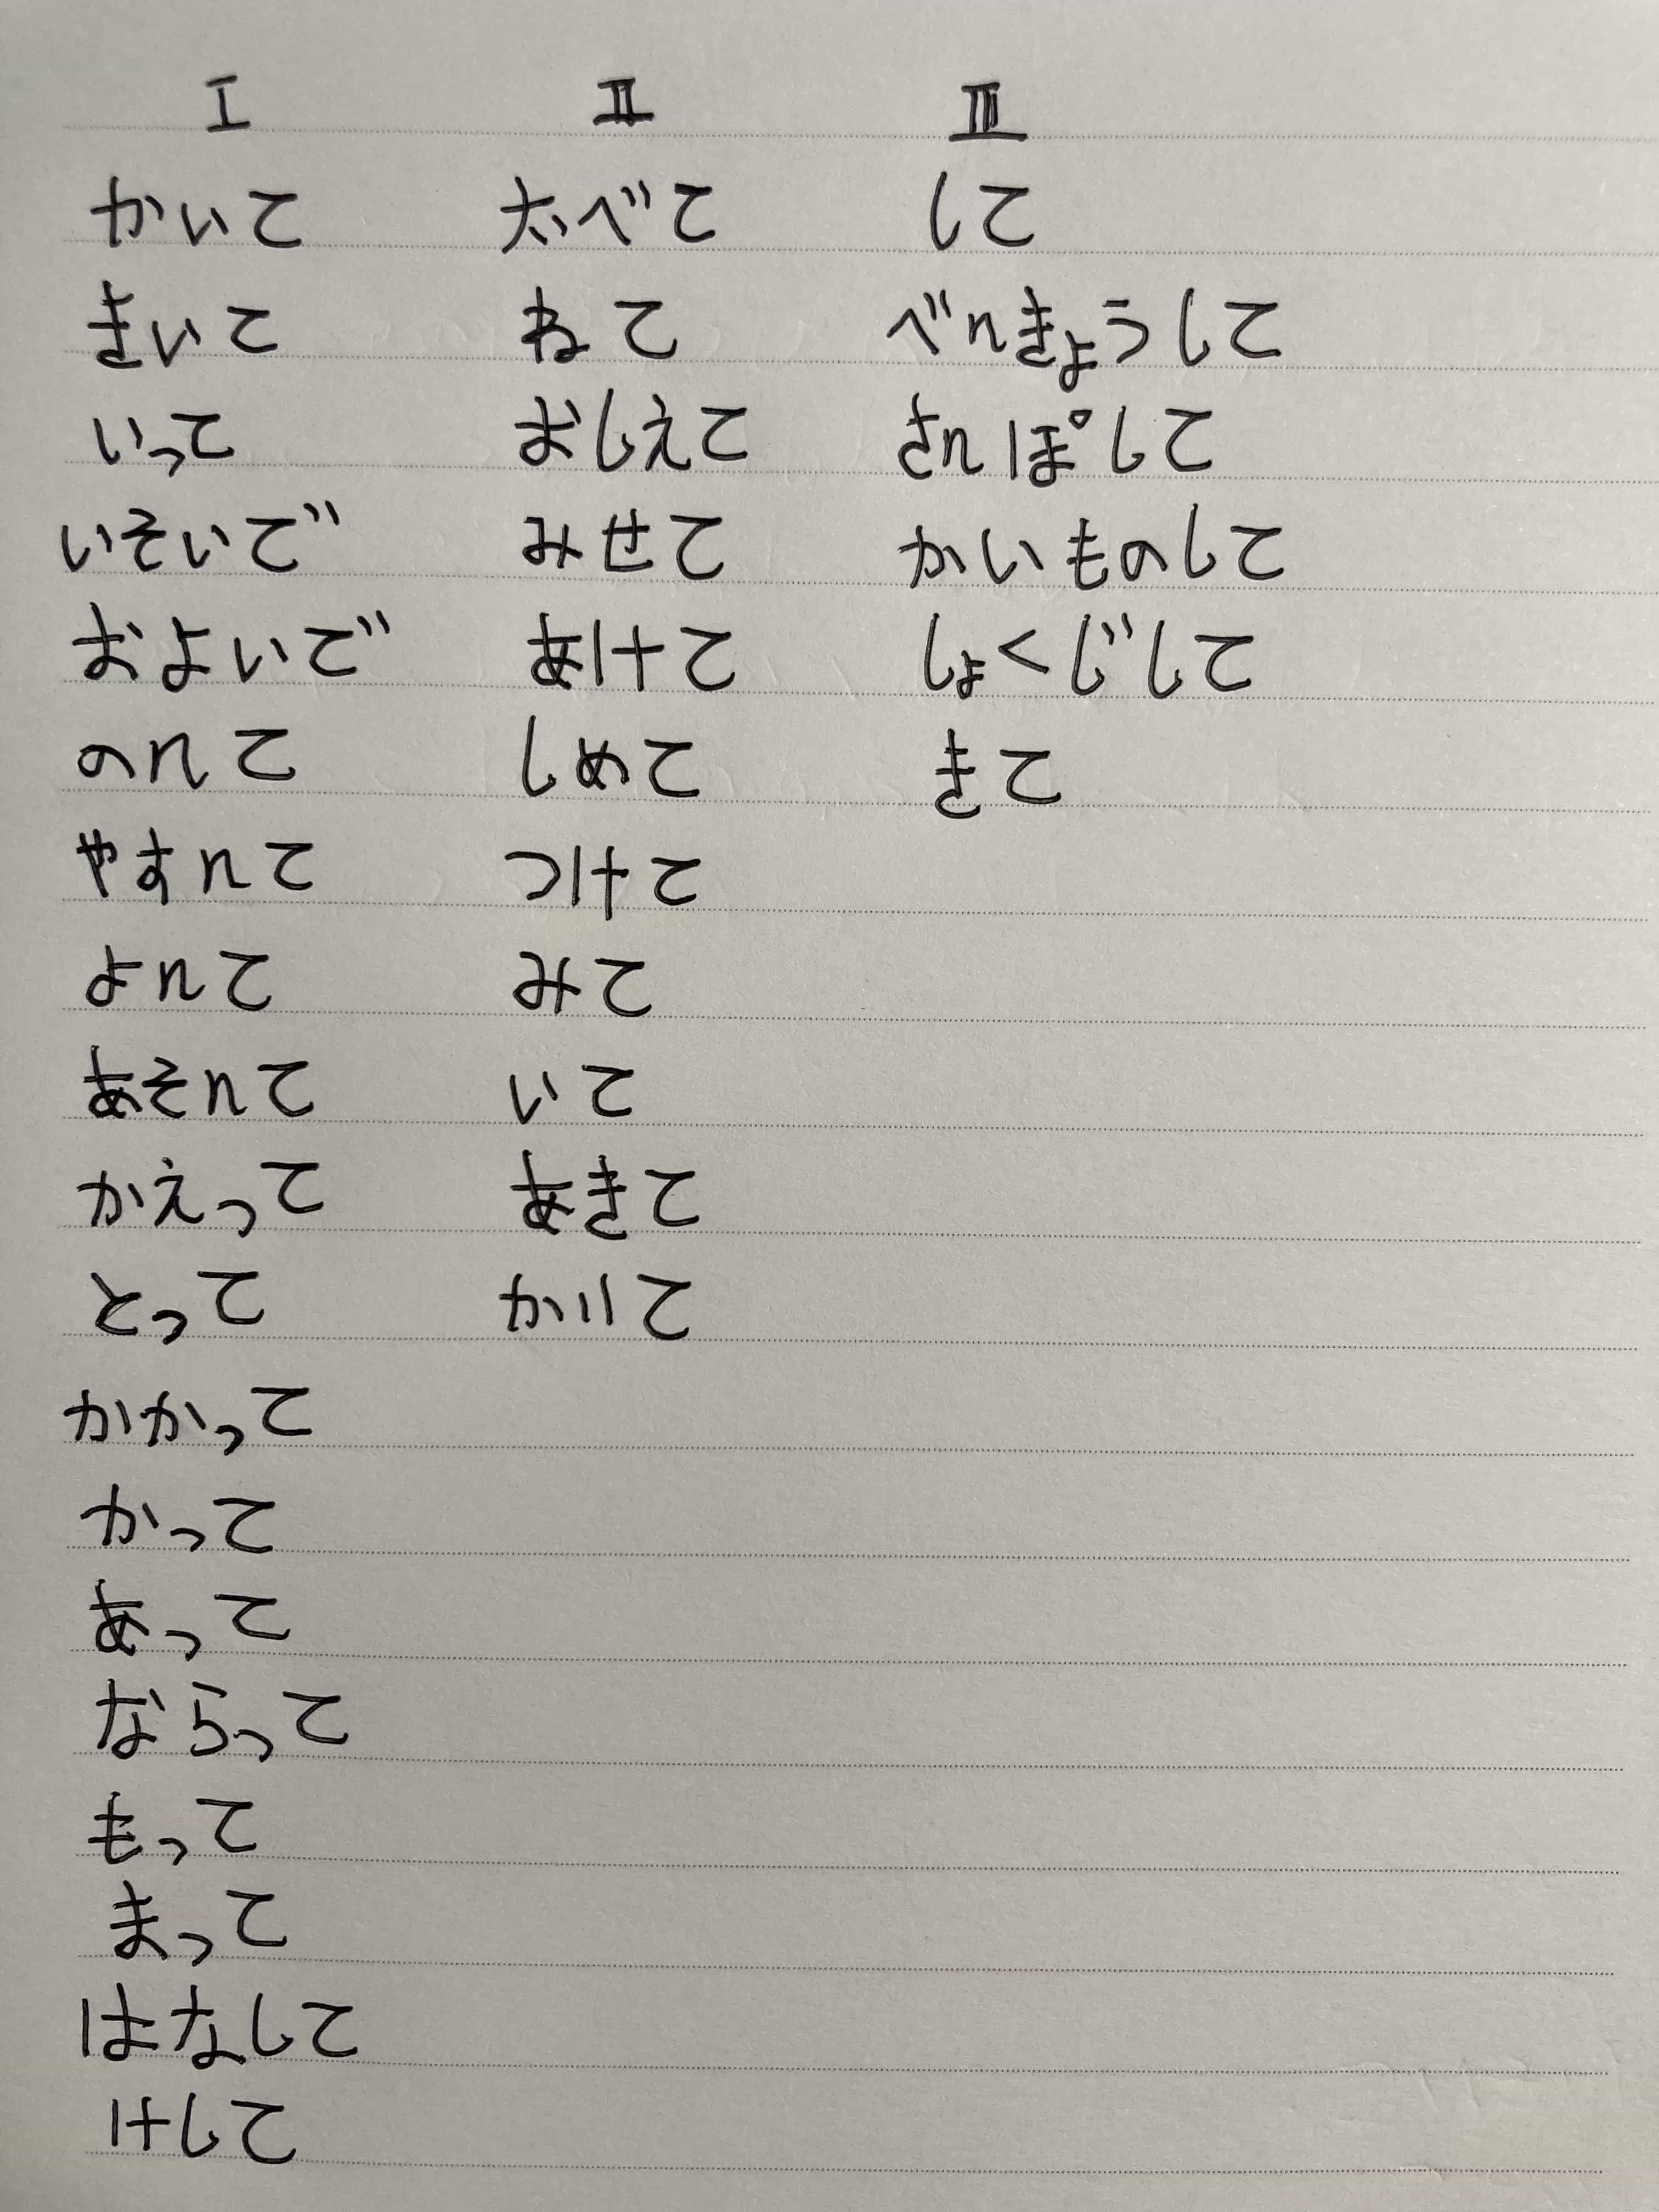 I II III
かいて たべて して
きいて ねて べんきょうして
いって おしえて さんぽして
いそいで みせて かいものして
およいで あけて しょくじして
のんて しめて きて
やすんて つけて
よんて みて
あそんて いて
かえって あきて
とって かりて
かかって
かって
あって
ならって
もって
まって
はなして
けして